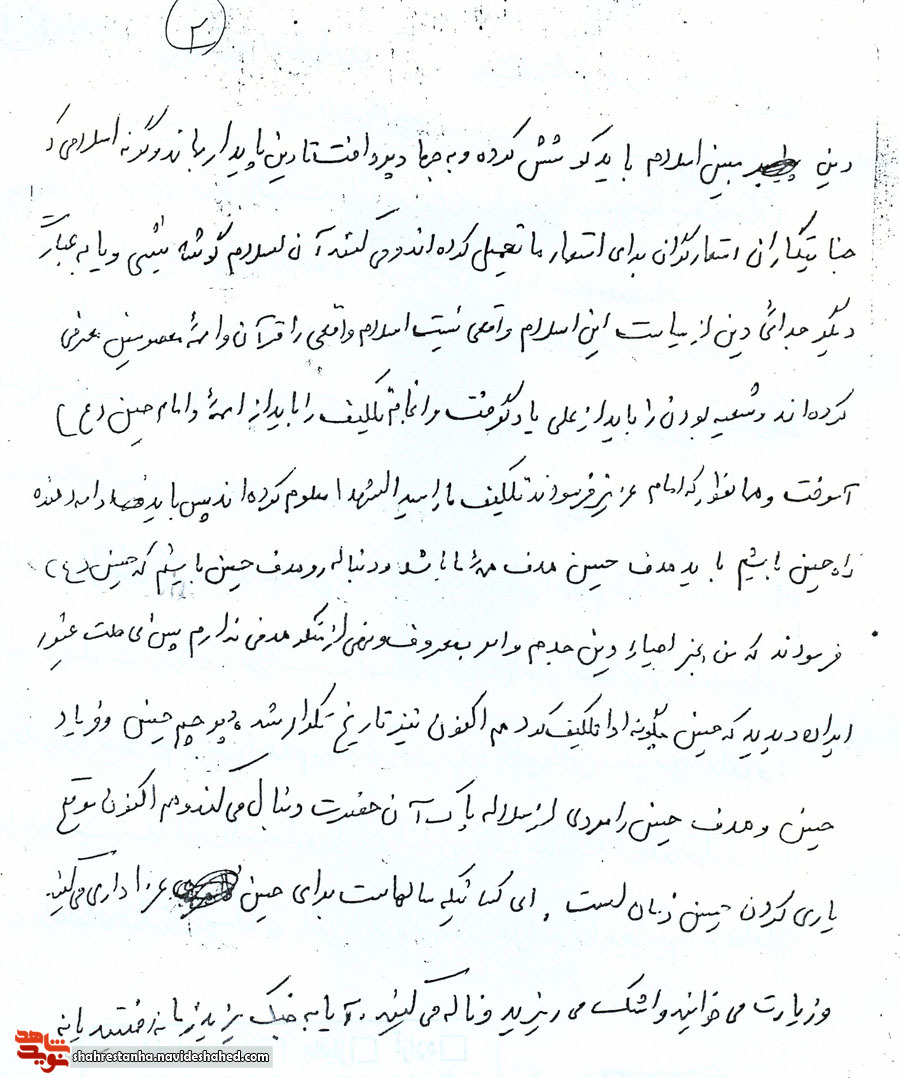 ۲
دین مبین اسلام باید کوشش کرده و به جهاد پرداخت تا دین پایدار بماند وگرنه اسلامی که
جنایتکاران استعمارگران برای استعمار ما تحمیل کرده اند و می گفتند آن اسلام گوشه نشینی و یا به عبارت
دیگر جدائی دین از سیاست این اسلام واقعی نیست اسلام واقعی را قرآن و ائمهٔ معصومین معرفی
کرده اند و شعیه بودن را باید از علی یاد گرفت و انجام تکلیف را باید از ائمهٔ و امام حسین (ع)
آموخت و همانطور که امام عزیز فرمودند تکلیف ما را سید الشهدا معلوم کرده اند پس باید ادامه دهنده
راه حسین باشیم باید هدف حسین هدف همهٔ ما باشد و دنباله رو هدف حسین باشیم که حسین (ع)
فرمودند که من بجز احیاء دین جدم و امر به معروف و نهی از منکر هدفی ندارم پس ای ملت غیور
ایران دیدید که حسین چگونه ادا تکلیف کرد هم اکنون نیز تاریخ تکرار شده پرچم حسین و فریاد
حسین و هدف حسین را مردی از سلاله پاک آن حضرت دنبال می کند و هم اکنون موقع
یاری کردن حسین زمان است . ای کسانیکه سالهاست برای حسین عزاداری می کنید.
و زیارت می خوانید و اشک می ریزید و ناله می کنید . آیا به جنگ یزید زمانه رفتید یا نه
شاهد
نوید
shahrestanha.navideshahed.com